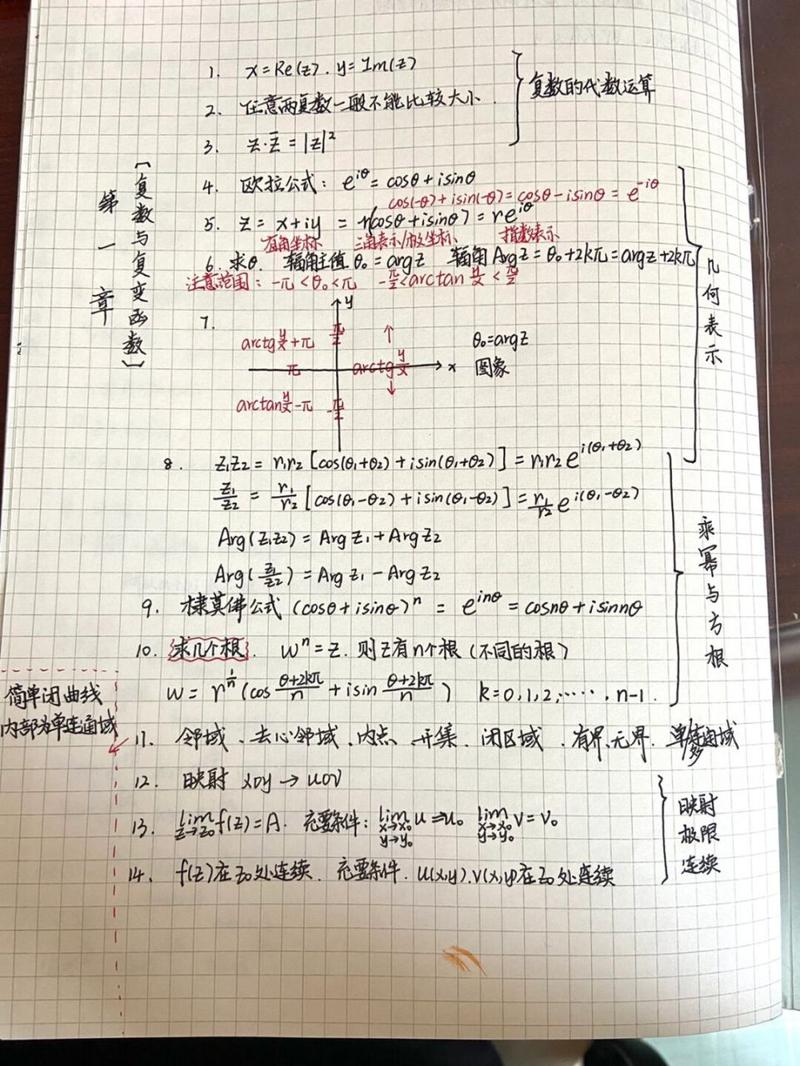 第一章
〔复数与复变函数〕
1. x=Re(z). y=Im(z)
2. 任意两复数一般不能比较大小.
3. z·z̄=|z|²
复数的代数运算
4. 欧拉公式: e^{iθ}=cosθ+isinθ
cos(-θ)+isin(-θ)=cosθ-isinθ=e^{-iθ}
5. z=x+iy=r(cosθ+isinθ)=re^{iθ}
直角坐标 三角表示/极坐标 指数表示
6. 求θ. 辐角主值θ₀=argz 辐角Argz=θ₀+2kπ=argz+2kπ
注意范围: -π<θ₀<π -π/2<arctan y/x<π/2
7.
y
arctg y/x+π
π/2
π
arctg y/x
x
arctan y/x-π
-π/2
θ₀=argz
图象
几何表示
8. z₁z₂=r₁r₂[cos(θ₁+θ₂)+isin(θ₁+θ₂)]=r₁r₂e^{i(θ₁+θ₂)}
z₁/z₂=r₁/r₂[cos(θ₁-θ₂)+isin(θ₁-θ₂)]=r₁/r₂e^{i(θ₁-θ₂)}
Arg(z₁z₂)=Argz₁+Argz₂
Arg(z₁/z₂)=Argz₁-Argz₂
9. 棣莫佛公式(cosθ+isinθ)ⁿ=e^{inθ}=cosnθ+isinnθ
10. 求几个根. wⁿ=z. 则z有n个根(不同的根)
w=r^{1/n}(cos (θ+2kπ)/n+isin (θ+2kπ)/n) k=0,1,2,……,n-1.
乘幂与方根
简单闭曲线
内部为单连通域
11. 邻域、去心邻域、内点、开集、闭区域、有界、无界.
12. 映射 xoy→uov
13. lim z→z₀ f(z)=A. 充要条件: lim x→x₀ y→y₀ u=u₀ lim x→x₀ y→y₀ v=v₀
14. f(z)在z₀处连续. 充要条件. u(x,y).v(x,y)在z₀处连续
映射
极限
连续